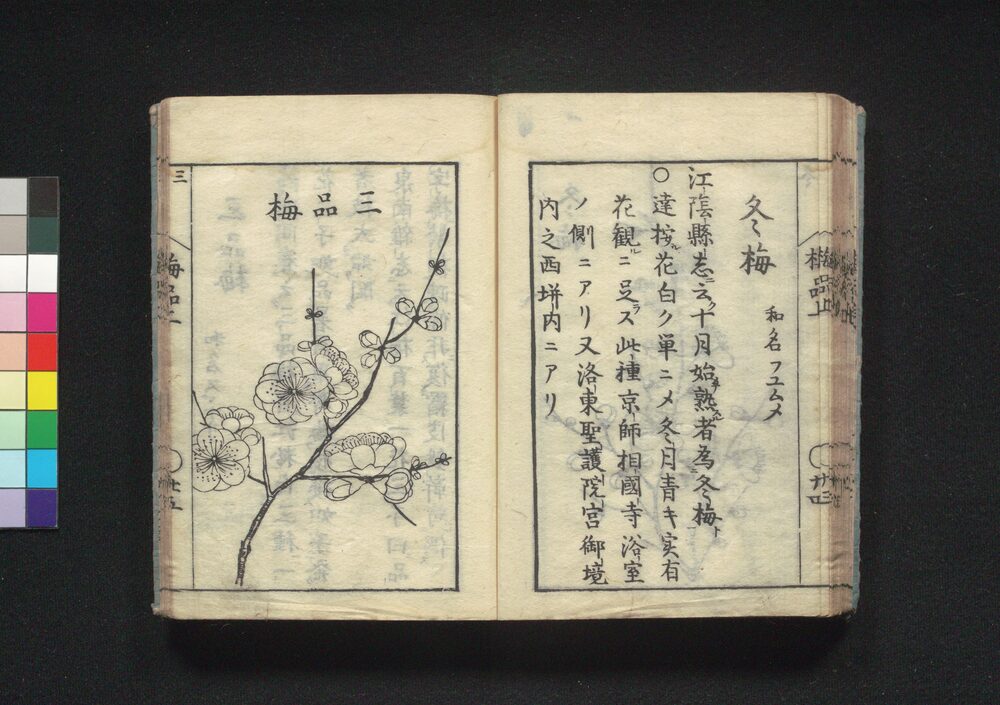 冬梅
和名フユムメ
江陰縣志ニ云ク十月始熟ル者為ニ冬梅ト一
○達按ルニ花白ク単ニメ冬月青キ実有
花観ルニ足ラス此種京師相國寺浴室
ノ側ニアリ又洛東聖護院宮御境
内之西垪内ニアリ
三品梅